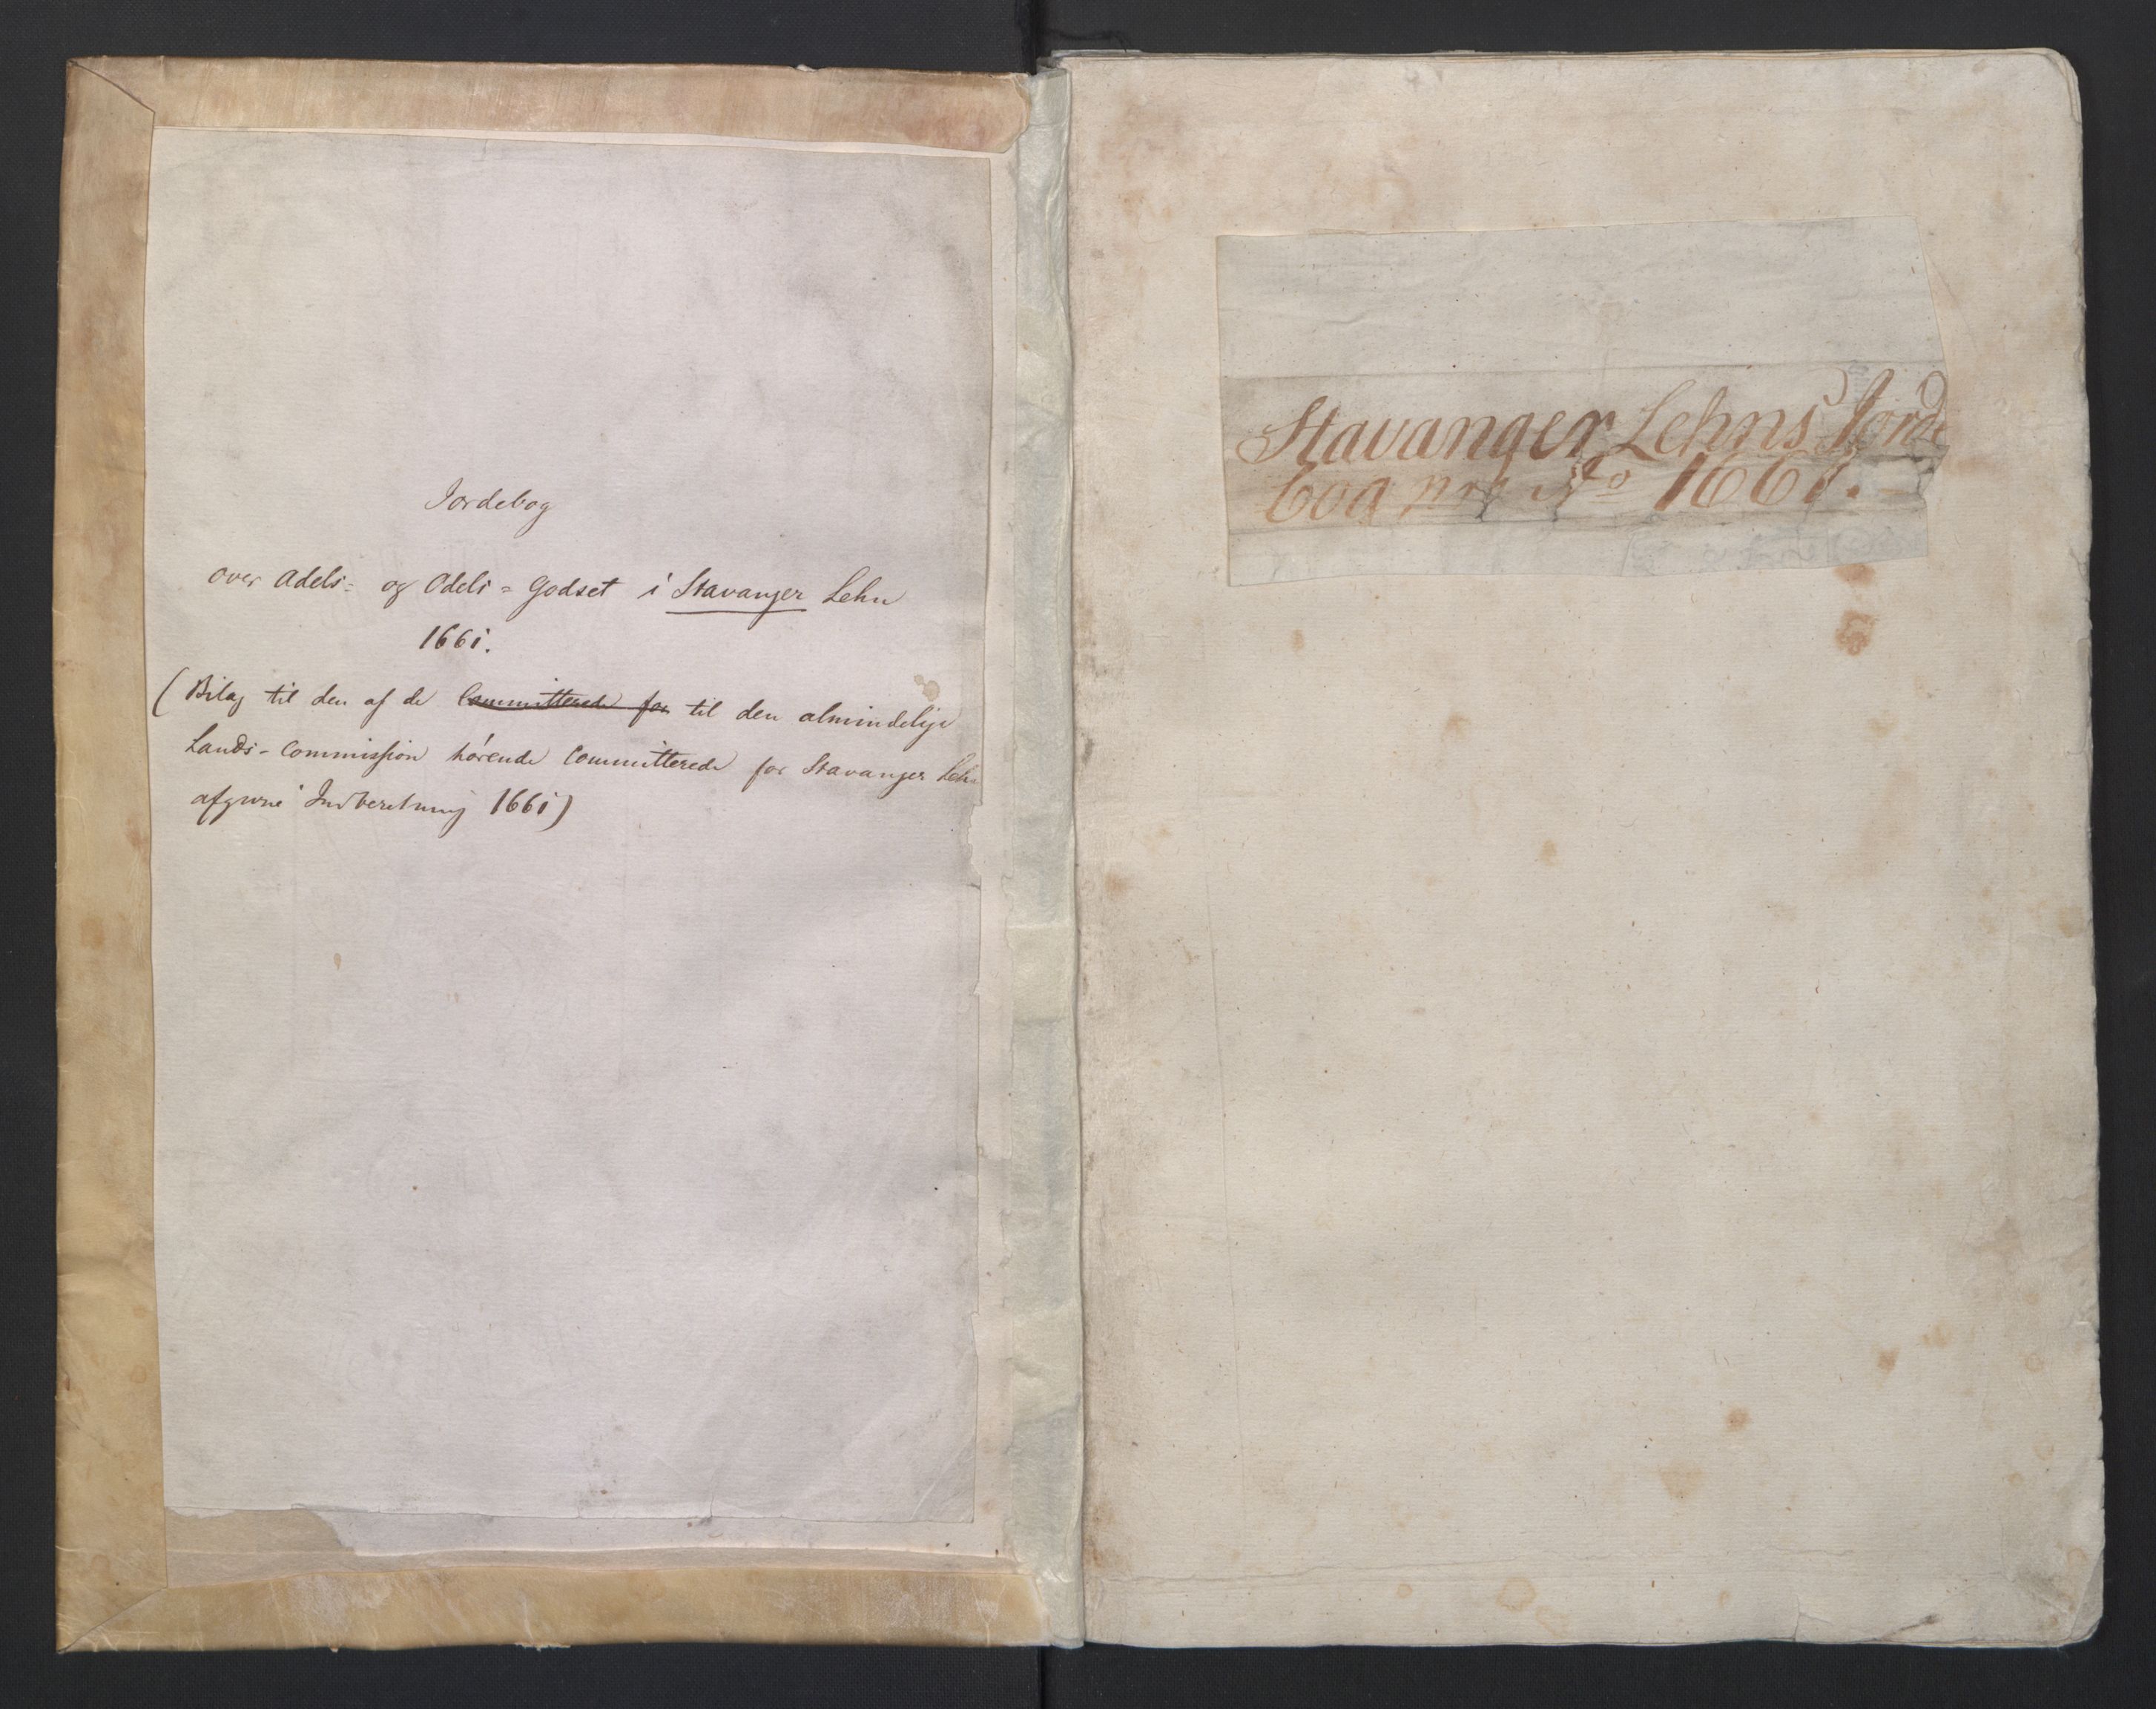 Jordebog
over Adels- og Odels-Godset i Stavanger Lehn
1661.
(Bilag til den af de Committerede for til den almindelige
Lands-Commission hörende Committerede for Stavanger Lehn
afgivne Indberetning 1661)
Stavanger Lehns Jorde
bog pro Ao 1661.